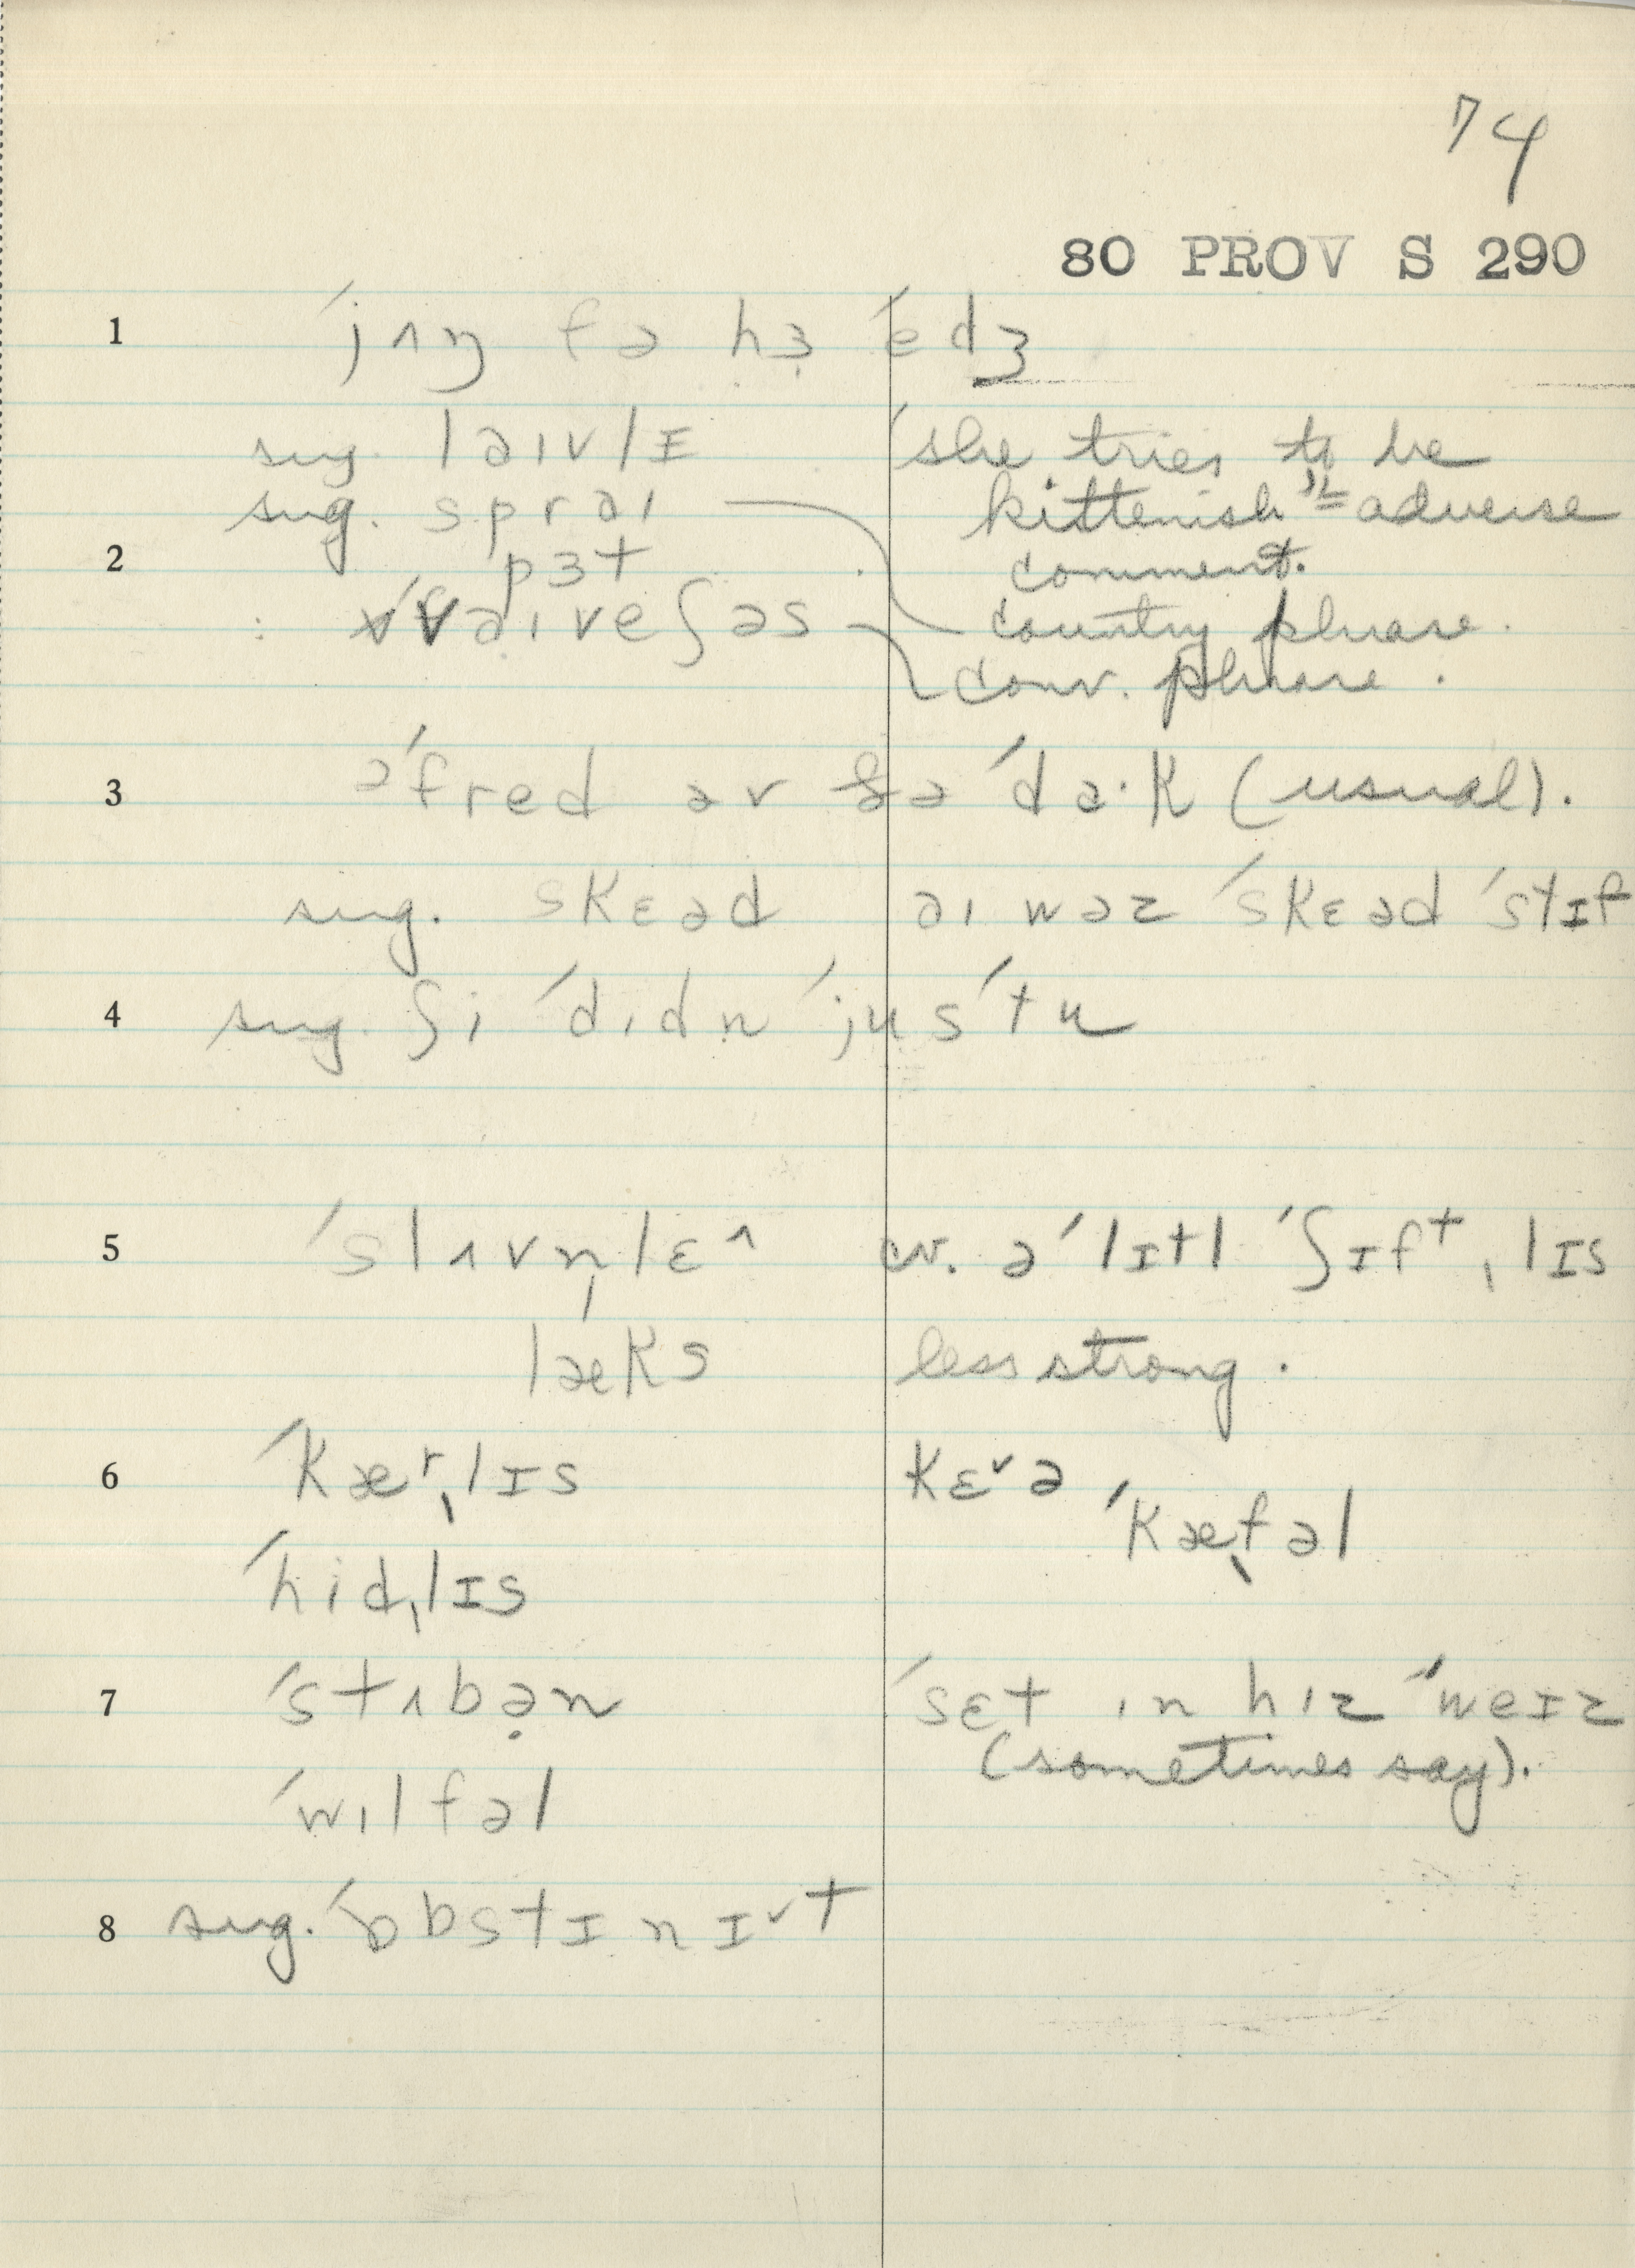 74
80 PROV S 290
1 ˈjʌŋ fə hɜ̣ ˈedʒ
sug. laɪvlɪ ˈshe tries to be
sug. spraɪ kittenish" = adverse
2 pɜt comment.
: vɪˈveʃəs country phrase.
conv. phrase.
3 əˈfred əv ðə ˈda·k (usual).
sug. skɛəd aɪ wəz ˈskɛəd ˈstɪf
4 sug. ʃi ˈdɪdn ˈjusˈtu
5 ˈslʌvn̩lɛ^ cv. əˈlɪtl ˈʃɪftˌlɪs
læks less strong.
6 ˈkærˌlɪs kɛ˅ə ˈkæˌfəl
ˈhidˌlɪs
7 ˈstʌbə̣n ˈsɛt ɪn hɪz ˈweɪz
(sometimes say).
ˈwɪlfəl
8 sug. ˈɒbstɪnɪ˅t